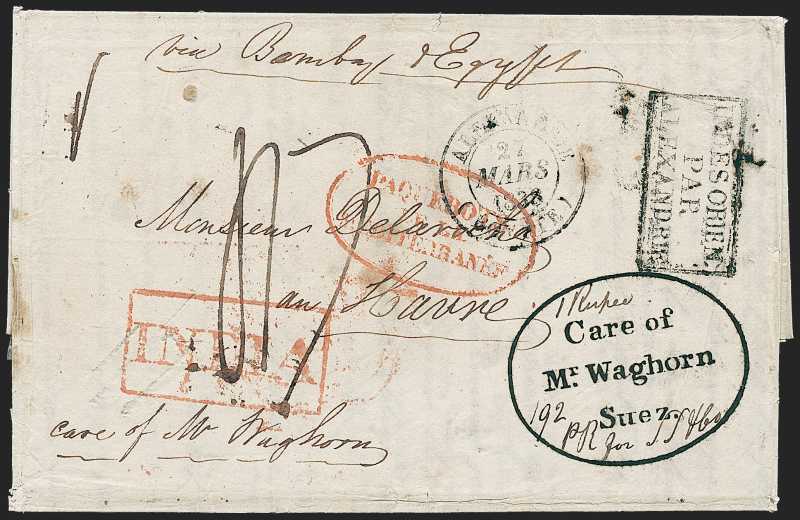 via Bombay & Egypt
ALEXANDRIE
27
MARS
INDES ORIENT.
PAR
ALEXANDRIE
PAQUEBOTS
DE LA
MEDITERRANÉE
Monsieur
au Havre
INDIA
1 Rupee
Care of
Mr. Waghorn
Suez.
192
PR for
care of Mr Waghorn